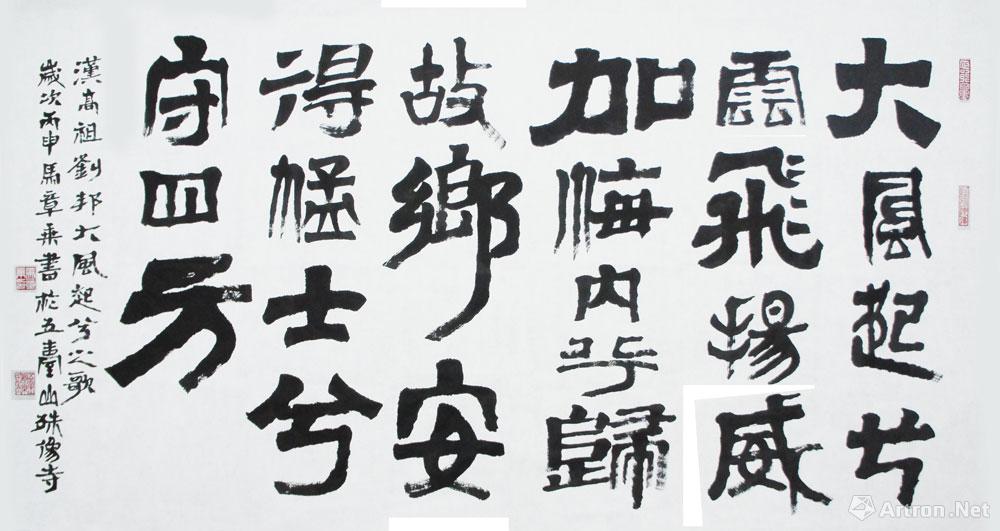 大風起兮
雲飛揚威
加海内兮歸
故鄉安
得猛士兮
守四方
漢高祖劉邦大風起兮之歌
歲次丙申馬章乘書於五臺山殊像寺
Artron.Net